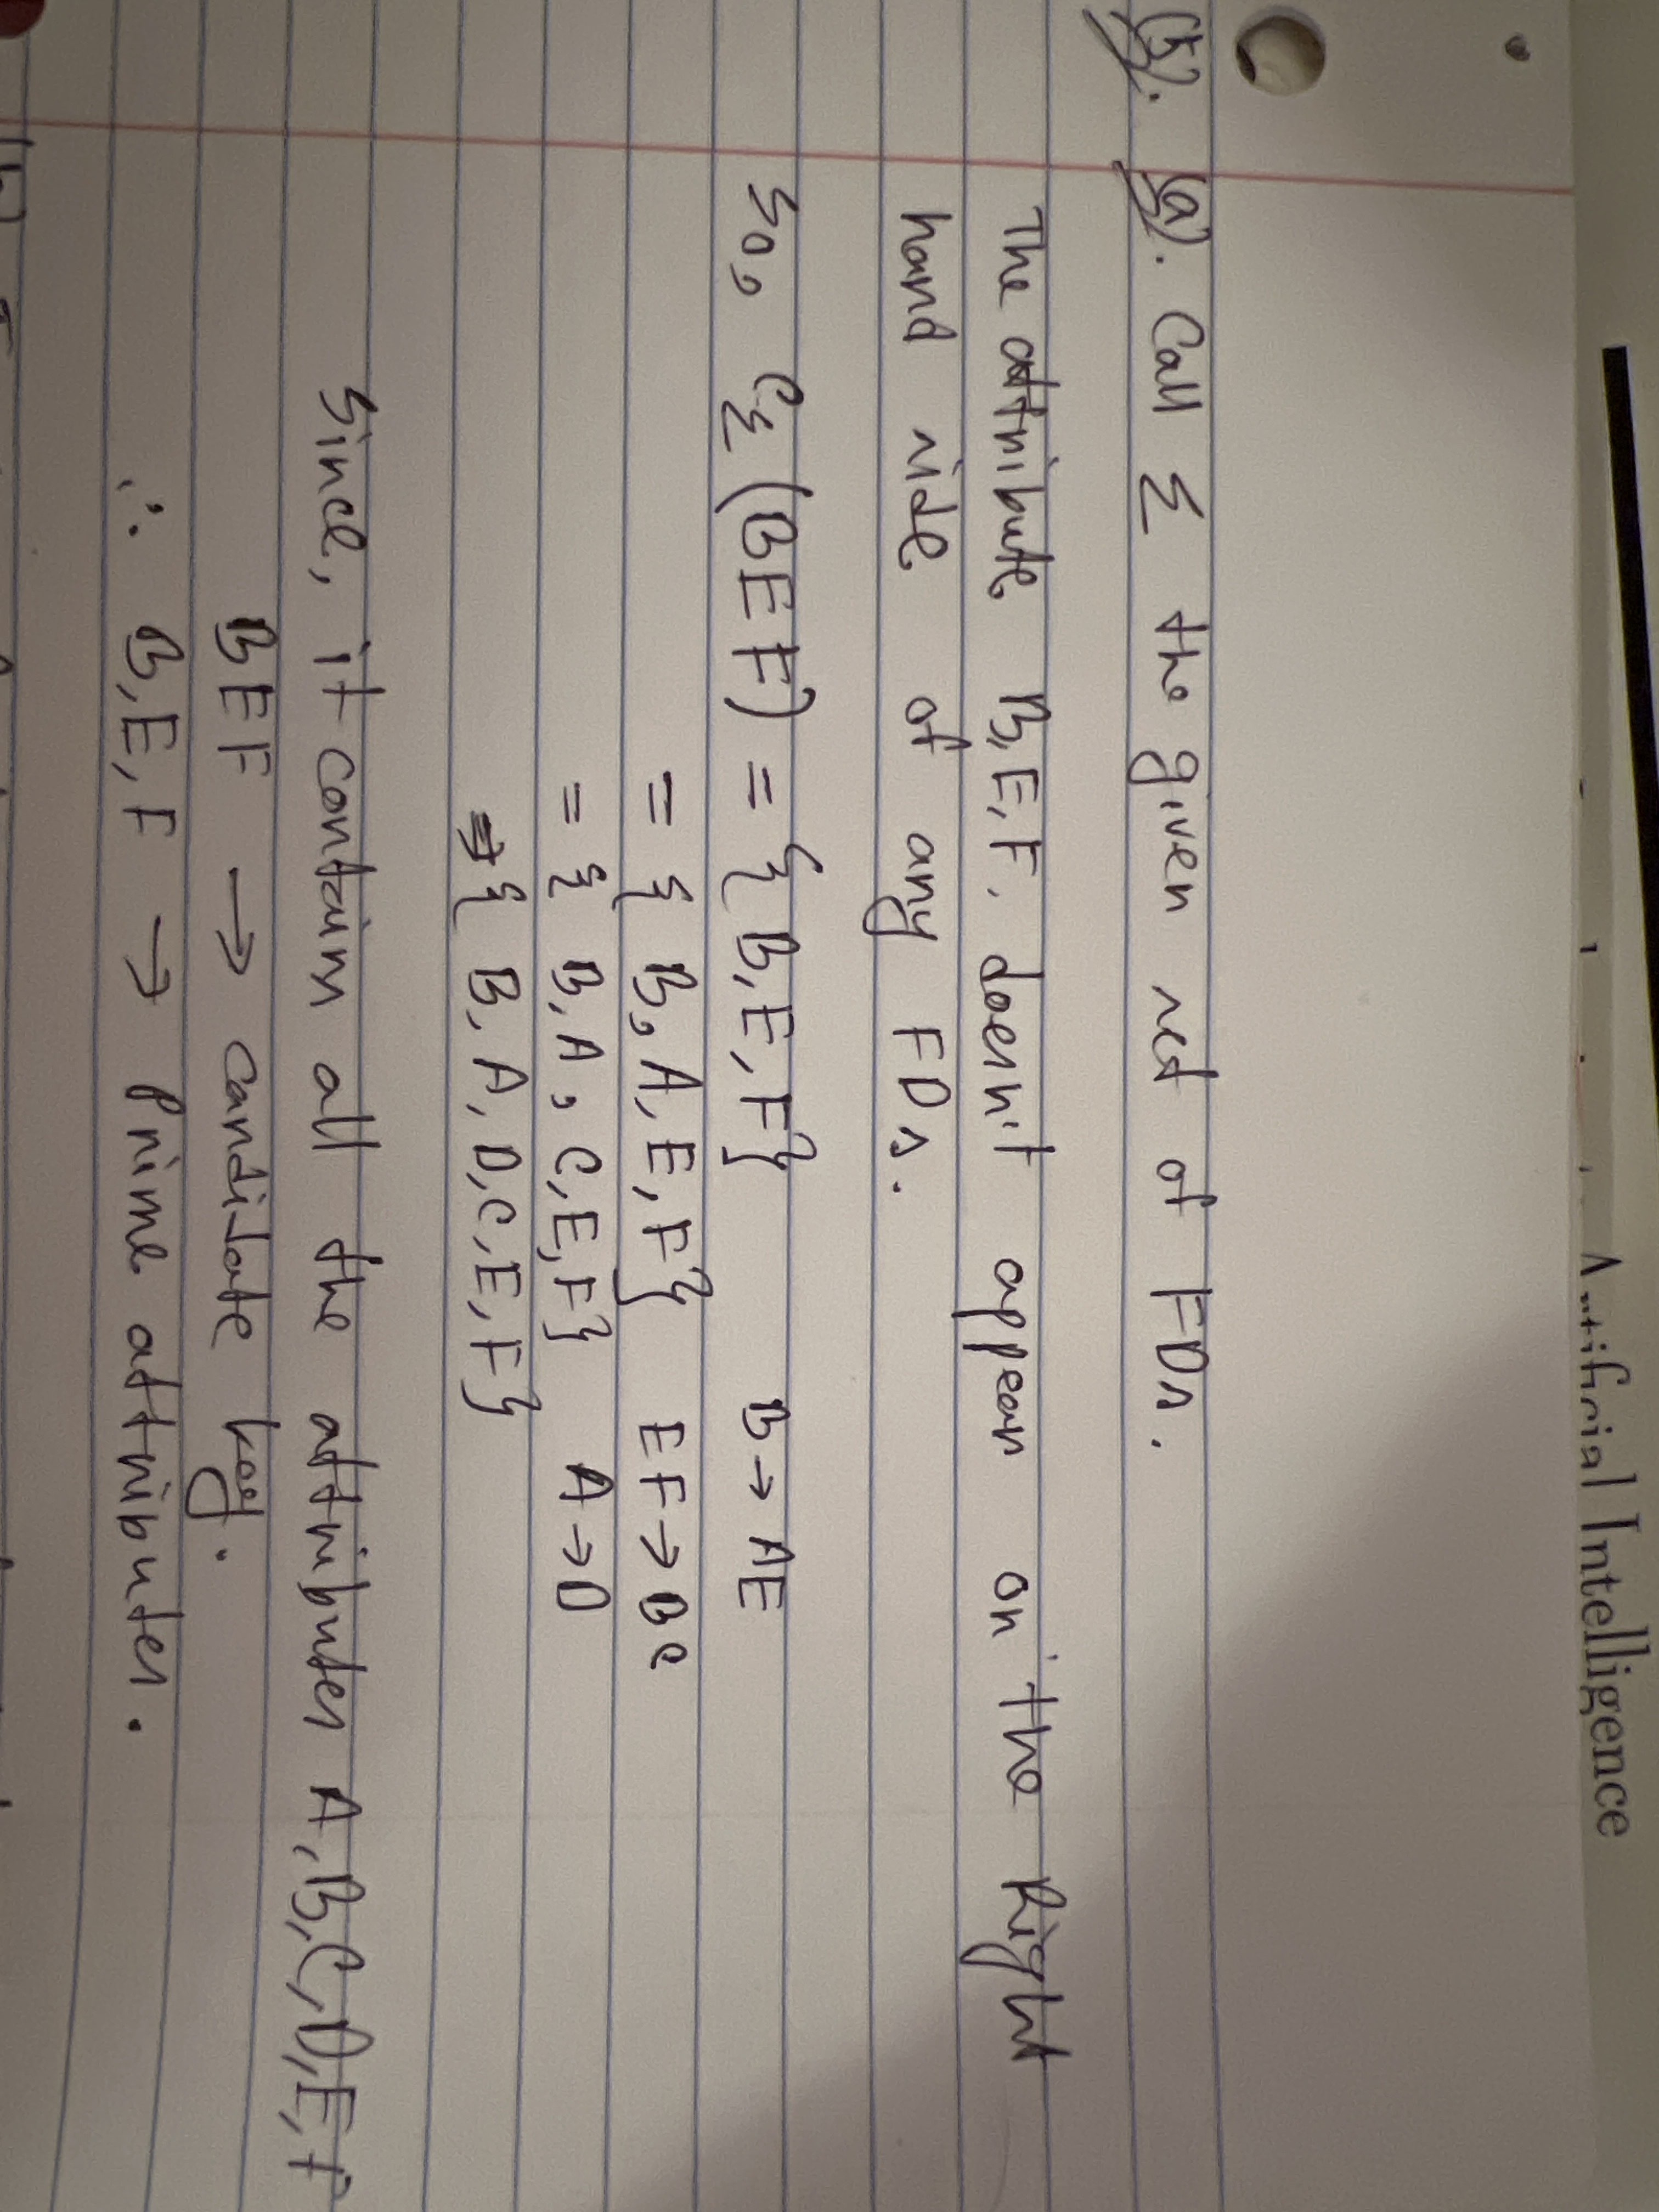 Artificial Intelligence
(5). (a). Call Σ the given set of FDs.
The attribute B, E, F. doesn't appear on the Right
hand side of any FDs.
So, CΣ (BEF) = { B, E, F} B → AE
= { B, A, E, F} EF → BC
= { B, A, C, E, F} A → D
⇒ { B, A, D, C, E, F}
Since, it contains all the attributes A, B, C, D, E, F
BEF → candidate key.
∴ B, E, F → Prime attributes.